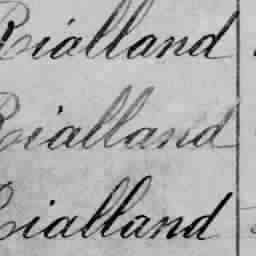 Rialland
Rialland
Rialland